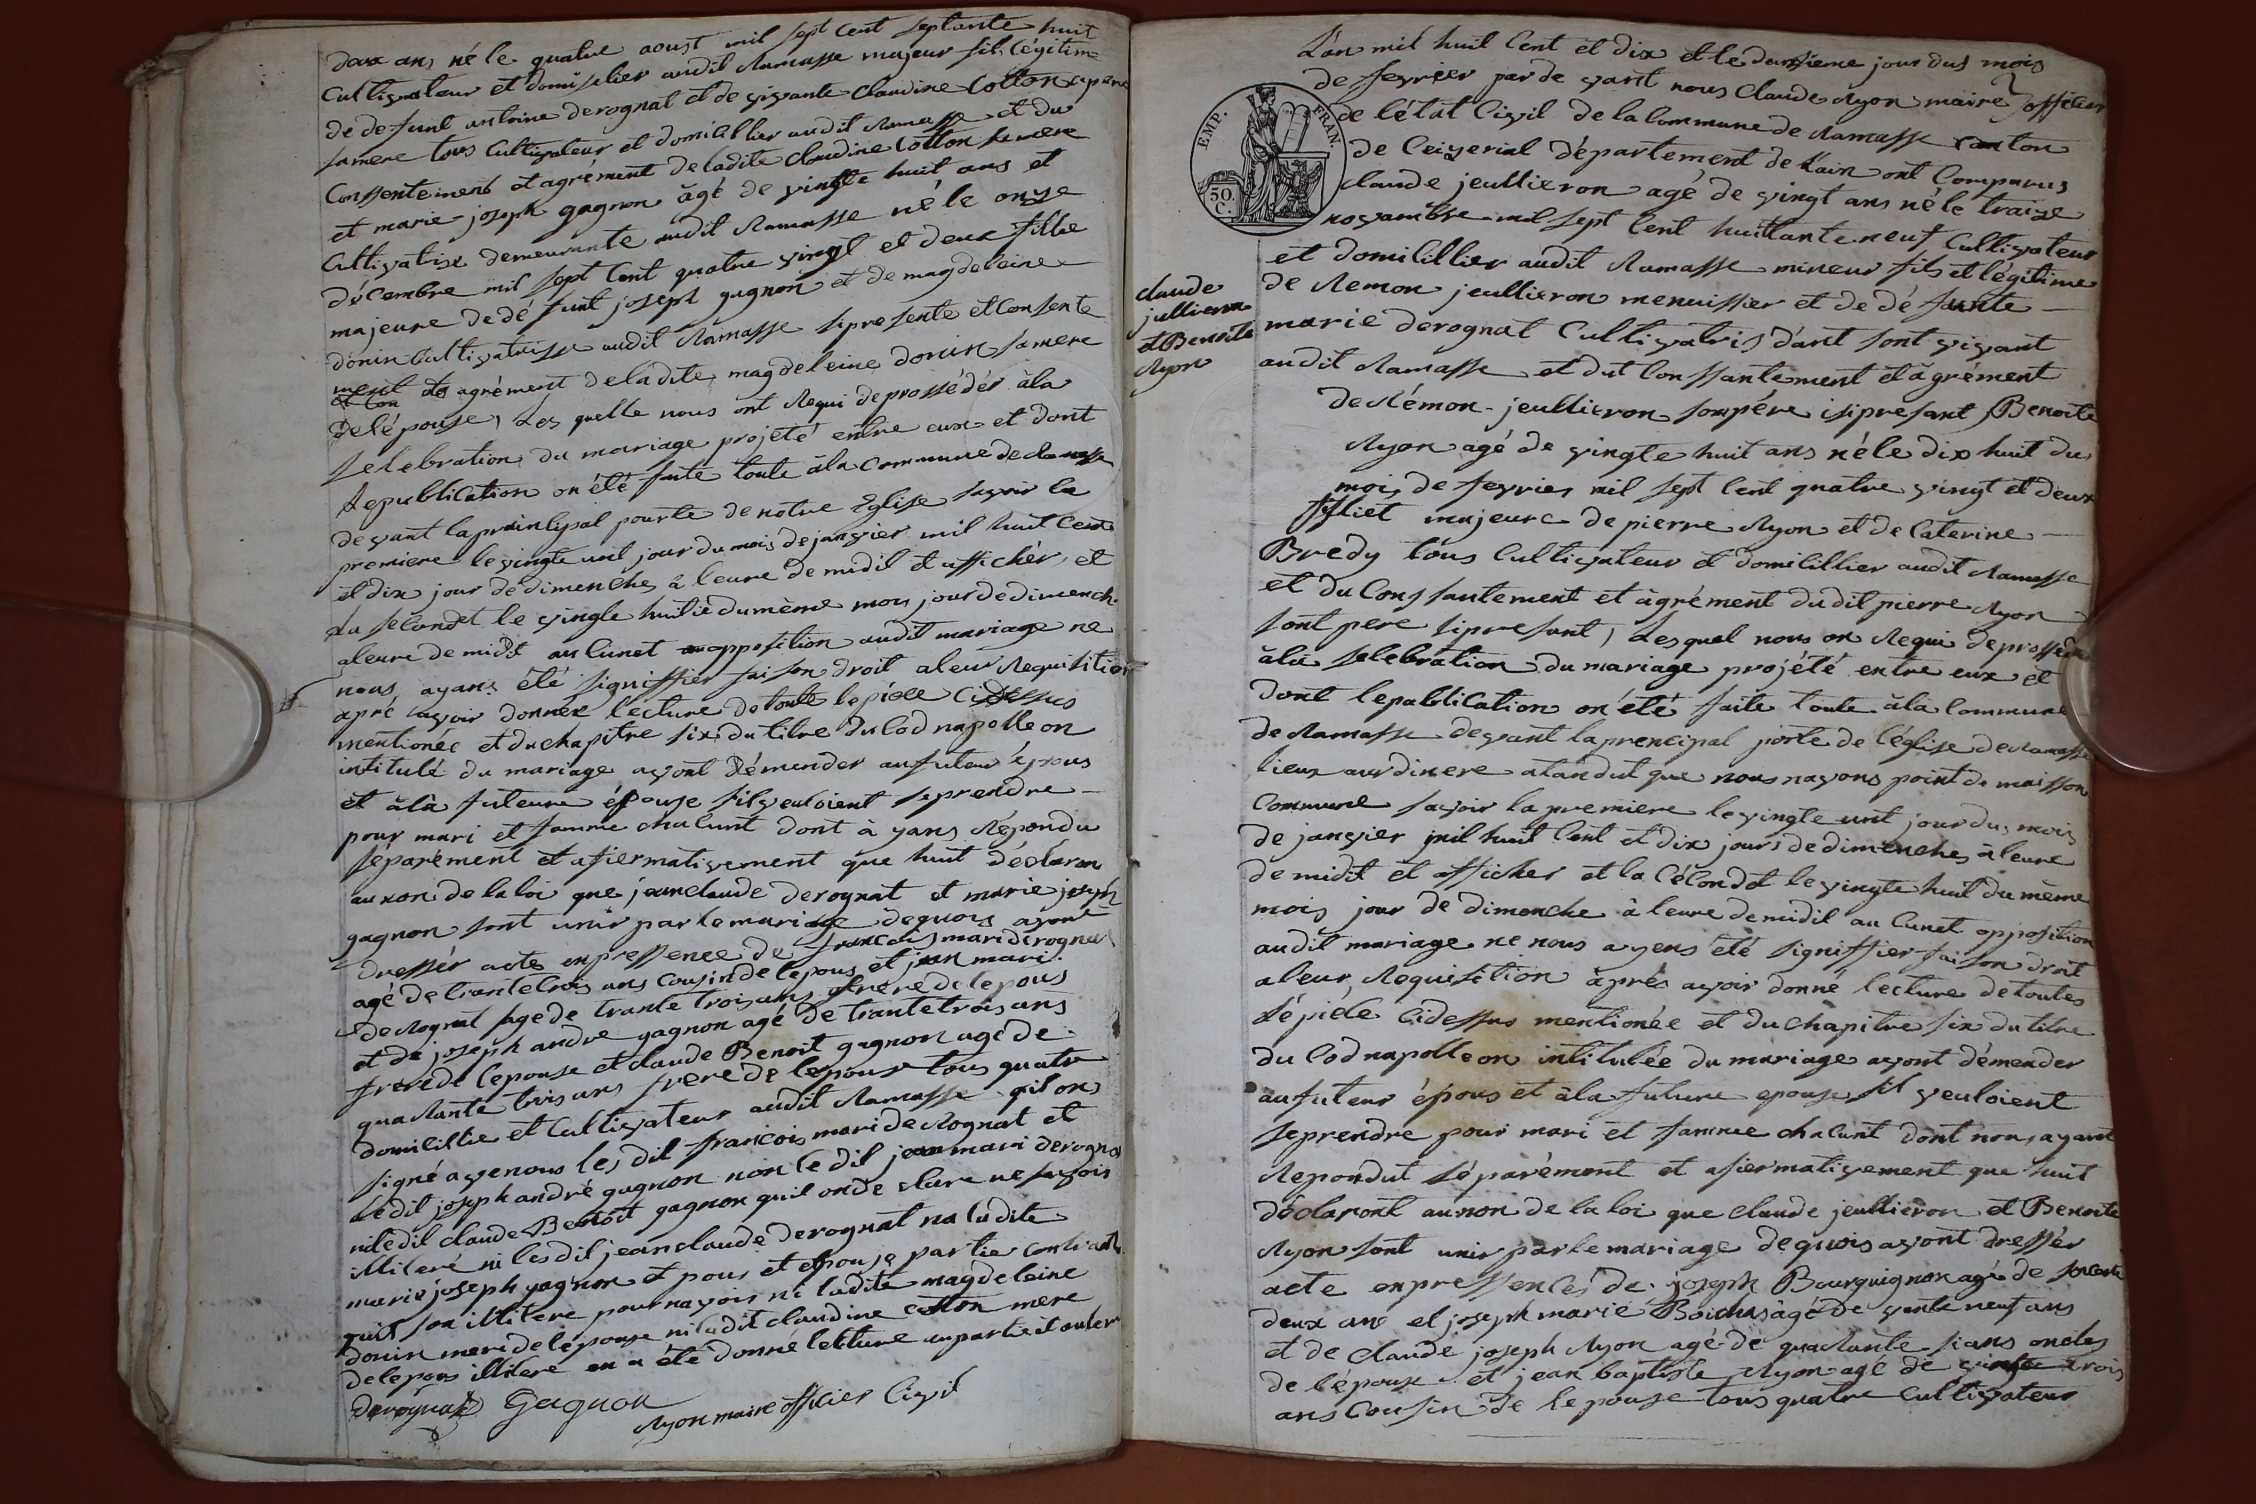 deux ans né le quatre aoust mil sept Cent septante huit
Cultivateur et domisilier audit Ramasse majeur fils légitime
de defunt antoine derognat et de vivante Claudine Cotton
sa mere tous Cultivateur et domicillier audit Ramasse et du
Conssentement et agrément de ladite Claudine Cotton sa mere
et marie joseph gagnon âgé de vingte huit ans et
Cultivatrise demeurante audit Ramasse né le onze
déCembre mil sept Cent quatre vingt et deux fillie
majeure de défunt joseph gagnon et de magdeleine
donin Cultivatrisse audit Ramasse sipresente et Consente
ment et agrément de ladite magdeleine donin sa mere
de lépouse, Les quelle nous ont Requi de prossédér àla
selebration du mariage projeté entre eux et dont
Lepublication on été faite toute àla Commune de Ramasse
devant la prainlipal pourte de notre Eglise savoir la
premiere le vingte unt jour du mois de janvier mil huit Cent
et dix jour de dimenche à leure de midit et afficher, et
La seCondt le vingte huitie du même mois jour de dimench
aleure de midit au Cunet opposition audit mariage ne
nous ayans été signiffier faison droit aleur Requisition
apré avoir donnée lecture de toute lepiéce Cidessus
mentionée et du chapitre six du titre du Cod napolleon
intitulé du mariage ayont démender aufuteur époux
et àlà futeure épouse sil veuloient seprendre
pour mari et famme chaCunt dont à yans Répondu
séparément et afiermativement que huit déclaron
aunon de la loi que jeanclaude derognat et marie joseph
gagnon sont unir par le mariage dequois ayont
dressér acte enpressence de francois mari derognat
agé de trante trois ans Cousin de lepous et jean mari
deRognat age de trante trois ans frere de lepous
et de joseph andre gagnon agé de trante trois ans
frere de lepouse et claude Benoit gagnon agé de
quaRante trois ans frere de lepouse tous quatre
domicillie et Cultivateur audit Ramasse qil ons
signé avenous les dit francois mari deRognat et
Le dit joseph andré gagnon non le dit jean mari derognat
nile dit claude Benoit gagnon quil onde clare ne savois
illiteré ni lesdit jeanclaude derognat na ladite
marie joseph gagnon et pous et epouse partie Contract
quit son illitere pour navois ni ladite magdeleine
donin mere de lépouse ni ladit claudine Cotton mere
delepous illitere en a été donné lekture
derognat Gagnon
Ryon maire officier Civil
L'an mil huit Cent et dix et le douzieme jour dus mois
de fevrier par de vant nous Claude Ryon maire officier
de l'état Civil de la Commune de Ramasse canton
de Ceizerial département de Lain ont Comparus
claude jeullieron agé de vingt ans né le traize
novambre mil sept Cent huittante neuf Cultivateur
et domicillier audit Ramasse mineur fils et légitime
EMP. FRAN.
50. C.
claude
jullieron
et Benoite
Ryon
de Remon jeullieron menuissier et de défunte
marie derognat Cultivatris dant sont vivant
audit Ramasse et dut Conssantement et àgrément
de Rémon jeullieron sonpére isipresant, Benoite
Ryon agé de vingte huit ans néle dix huit du
mois de fevrier mil sept Cent quatre vingt et deux
filliet majeure de pierre Ryon et de Caterine
Bredy tous Cultivateur et domicillier audit Ramasse
et du Conssantement et àgrément dudit pierre Ryon
sont pere sipresant, Lesquel nous on Requi de prosséder
àla selebration du mariage projété entre eux et
dont lepublication on été faite toute àla Commune
de Ramasse devant la prencipal porte de l'église de Ramasse
lieux aurdinere atandut que nous navons point de maisson
Commune savoir la premiere le vingte unt jour dus mois
de janvier mil huit Cent et dix jours de dimenches à leure
de midit et afficher et la CéCondt le vingte huit du même
mois jour de dimenche à leure de midit au Cunet opposition
audit mariage ne nous ayens été signiffier faison droit
aleur Requisition après avoir donné lecture de toutes
Lépiéce Cidessus mentionée et du chapitre six du titre
du Cod napolleon intitulée du mariage ayont démender
aufuteur épous et àla future epouse, sil veuloient
seprendre pour mari et famme chaCunt dont nous ayant
Repondut séparément et afiermativement que huit
déclaront aunon de la loi que claude jeullieron et Benoite
Ryon sont unir par le mariage dequois ayont dressér
acte enpressences de joseph Bourguignon agé de soixante
deux ans et joseph marie agé de vente neuf ans
et de claude joseph Ryon agé de quaRante sians oncles
de lépouse et jean baptiste Ryon agé de vingte trois
ans Cousin de lepouse tous quatre Cultivateur